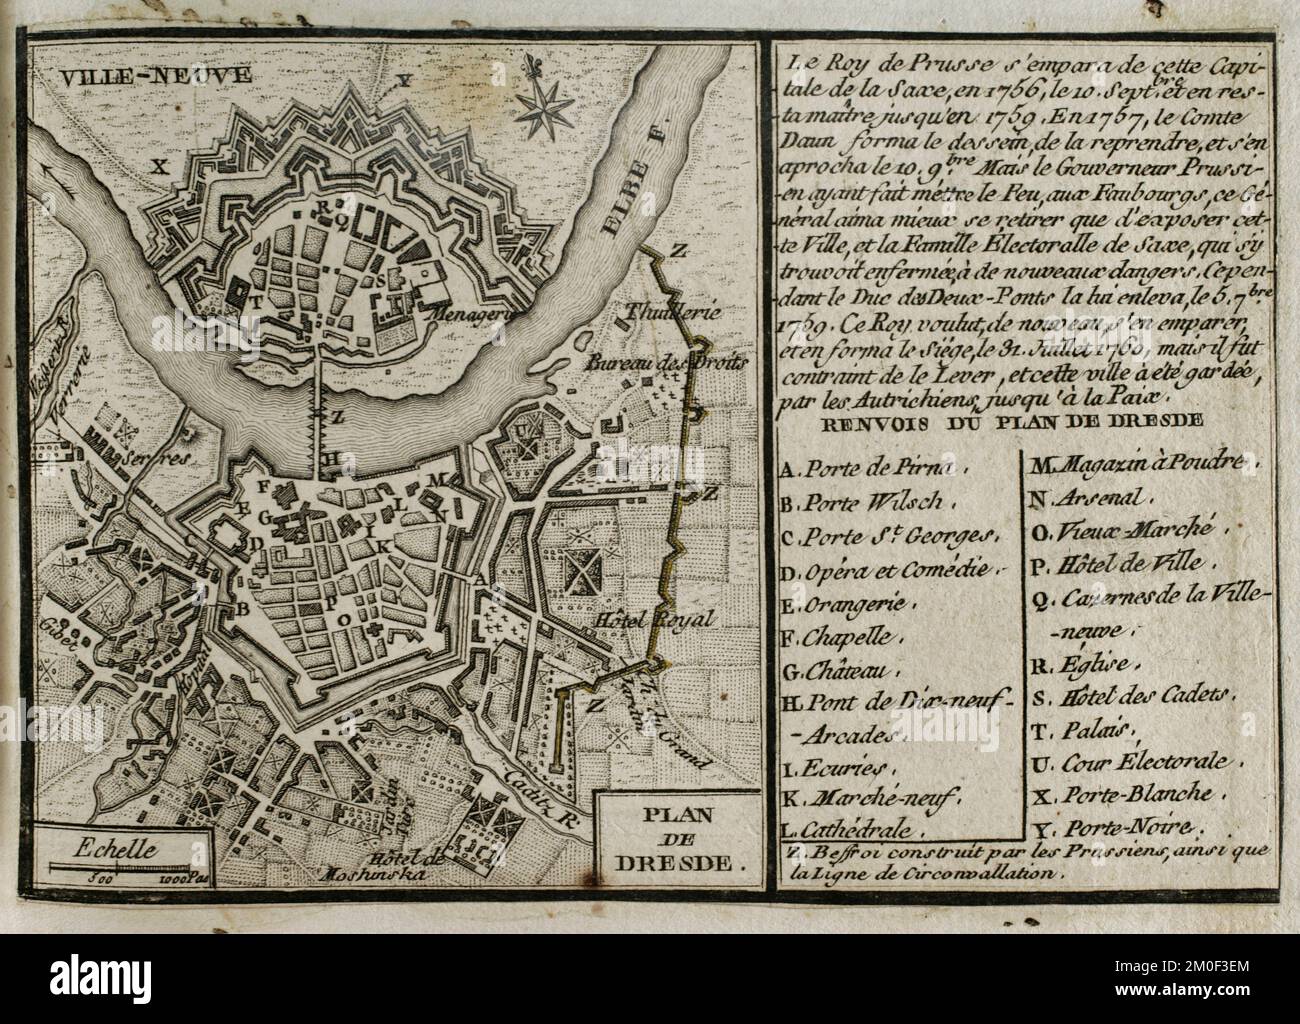 VILLE-NEUVE
Y
X
ELBE F.
R
Q
Z
T
S
Menagerie
Thuillerie
Bureau des Droits
Z
Z
H
U
F
E
G
L
M
N
I
K
D
C
A
B
P
O
Hôtel Royal
Gibet
Hopital
Z
Caditz R.
Jardin
Turc
Hôtel de
Moshinska
Echelle
500 1000 Pas
PLAN
DE
DRESDE.
Le Roy de Prusse s'empara de cette Capi-
tale de la Saxe, en 1756, le 10. Sept.bre et en res-
ta maître jusqu'en 1759. En 1757, le Comte
Daun forma le dessein, de la reprendre, et s'en
aprocha le 10. 9.bre Mais le Gouverneur Prussi-
en ayant fait mettre le Feu, aux Faubourgs, ce Gé-
néral aima mieux se retirer que d'exposer cet-
te Ville, et la Famille Électoralle de Saxe, qui s'y
trouvoit enfermée, à de nouveaux dangers. Cepen-
dant le Duc des Deux-Ponts la lui enleva, le 5. 7.bre
1759. Ce Roy voulut, de nouveau, s'en emparer,
et en forma le Siége, le 31. Juillet 1760, mais il fut
contraint de le Lever, et cette ville à été gardée,
par les Autrichiens, jusqu'à la Paix.
RENVOIS DU PLAN DE DRESDE
A. Porte de Pirna.
B. Porte Wilsch.
C. Porte St. Georges.
D. Opéra et Comédie.
E. Orangerie.
F. Chapelle.
G. Château.
H. Pont de Dix-neuf-
-Arcades.
I. Ecuries.
K. Marché-neuf.
L. Cathédrale.
M. Magazin à Poudre.
N. Arsenal.
O. Vieux-Marché.
P. Hôtel de Ville.
Q. Cazernes de la Ville-
-neuve.
R. Église.
S. Hôtel des Cadets.
T. Palais.
U. Cour Électorale.
X. Porte-Blanche.
Y. Porte-Noire.
Z. Beffroi construit par les Prussiens, ainsi que
la Ligne de Circonvallation.
alamy
Image ID: 2M0F3EM
www.alamy.com